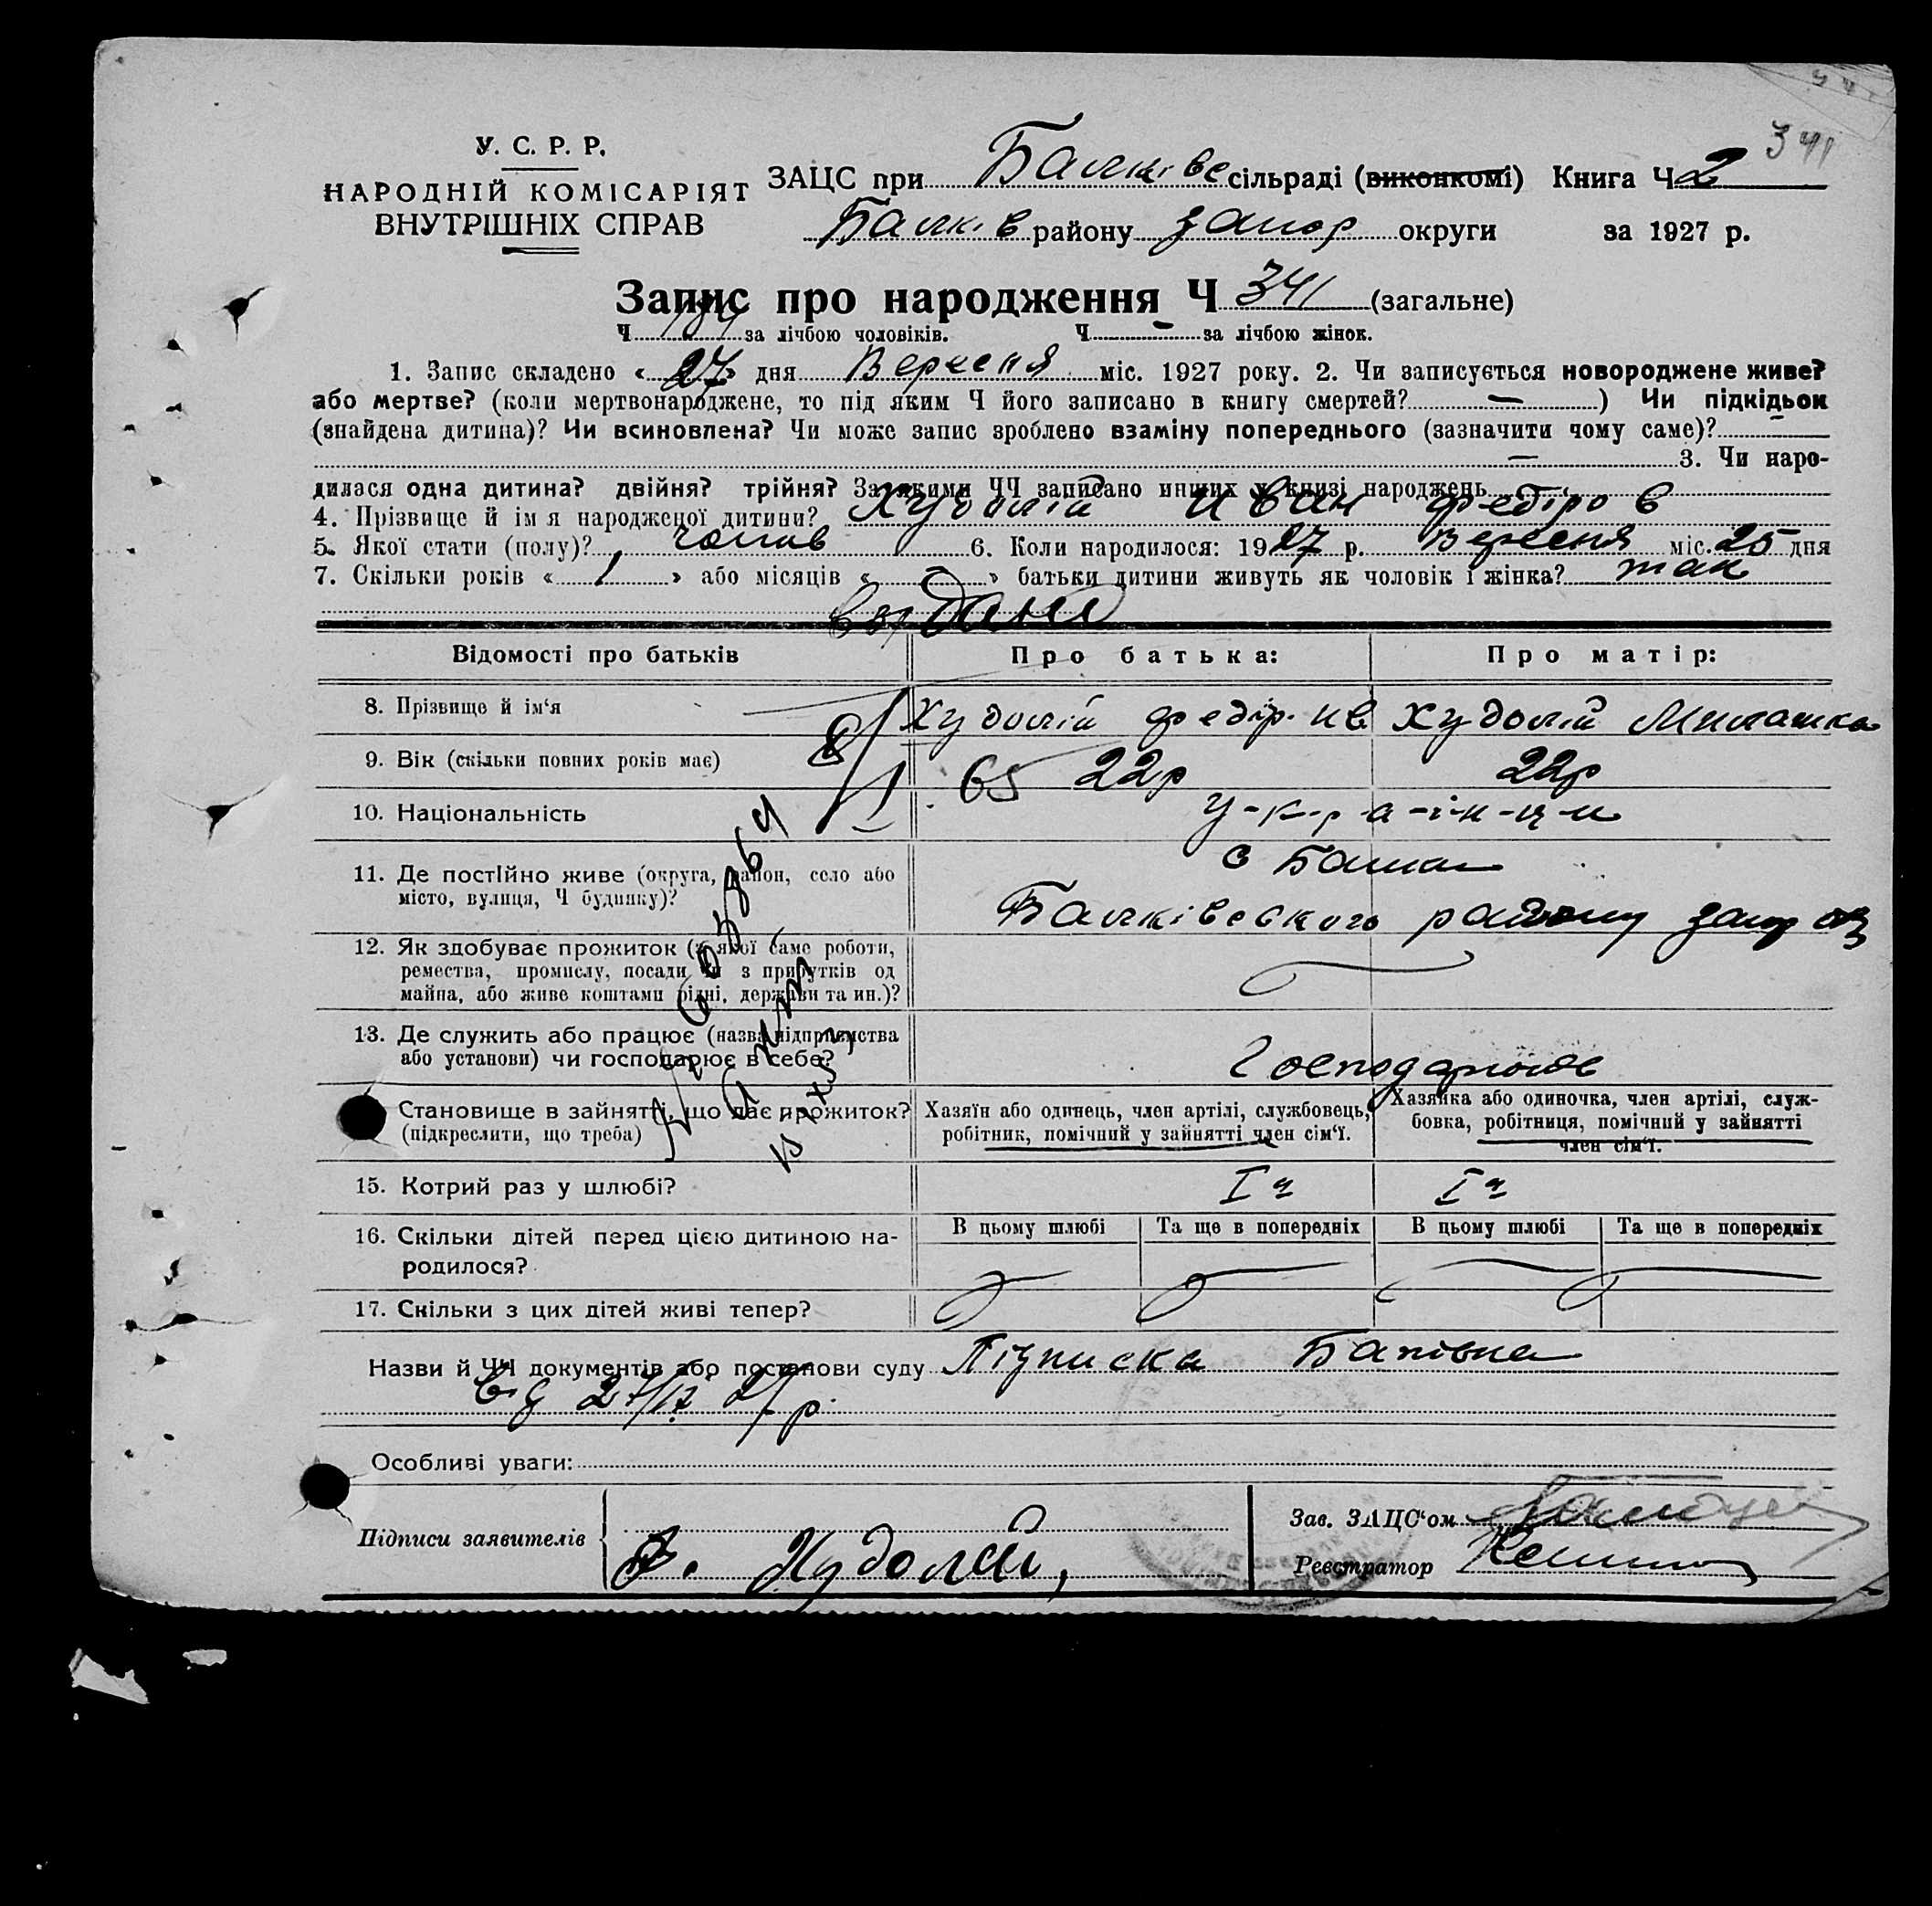 341
У. С. Р. Р.
НАРОДНІЙ КОМІСАРІЯТ
ВНУТРІШНІХ СПРАВ
ЗАЦС при Балківс сільраді (виконкомі) Книга Ч 2
Балків району Запор округи за 1927 р.
Запис про народження Ч 341 (загальне)
Ч 184 за лічбою чоловіків. Ч — за лічбою жінок.
1. Запис складено « 27 » дня Вересня міс. 1927 року. 2. Чи записується новороджене живе?
або мертве? (коли мертвонароджене, то під яким Ч його записано в книгу смертей? — ) Чи підкідьок
(знайдена дитина)? Чи всиновлена? Чи може запис зроблено взаміну попереднього (зазначити чому саме)? —
— 3. Чи наро-
дилася одна дитина? двійня? трійня? За якими ЧЧ записано инших у книзі народжень
4. Прізвище й ім'я народженої дитини? Худолій Иван Федіров
5. Якої стати (полу)? чолів 6. Коли народилося: 1927 р. Вересня міс. 25 дня
7. Скільки років « 1 » або місяців « — » батьки дитини живуть як чоловік і жінка? так
Відомості про батьків
Про батька:
Про матір:
8. Прізвище й ім'я Худолій Федір. Ив Худолій Милашка
9. Вік (скільки повних років має) 22р 22р
10. Національність у-к-р-а-ї-н-ц-и
11. Де постійно живе (округа, район, село або
місто, вулиця, Ч будинку)?
с Балки
Балківського району Запор ок
12. Як здобуває прожиток (з якої саме роботи,
ремества, промислу, посади чи з прибутків од
майна, або живе коштами рідні, держави та ин.)?
13. Де служить або працює (назва підприємства
або установи) чи господарює в себе?
Господарює
Становище в зайнятті, що дає прожиток?
(підкреслити, що треба)
Хазяїн або одинець, член артілі, службовець,
робітник, помічний у зайнятті член сім'ї.
Хазяйка або одиночка, член артілі, служ-
бовка, робітниця, помічний у зайнятті
член сім'ї.
15. Котрий раз у шлюбі? I й I й
16. Скільки дітей перед цією дитиною на-
родилося?
В цьому шлюбі Та ще в попередніх В цьому шлюбі Та ще в попередніх
17. Скільки з цих дітей живі тепер?
Назви й ЧЧ документів або постанови суду Підписка Батівна
від 27/IX 27 р.
Особливі уваги:
Підписи заявителів
Худолій
Зав. ЗАЦС'ом
Реєстратор